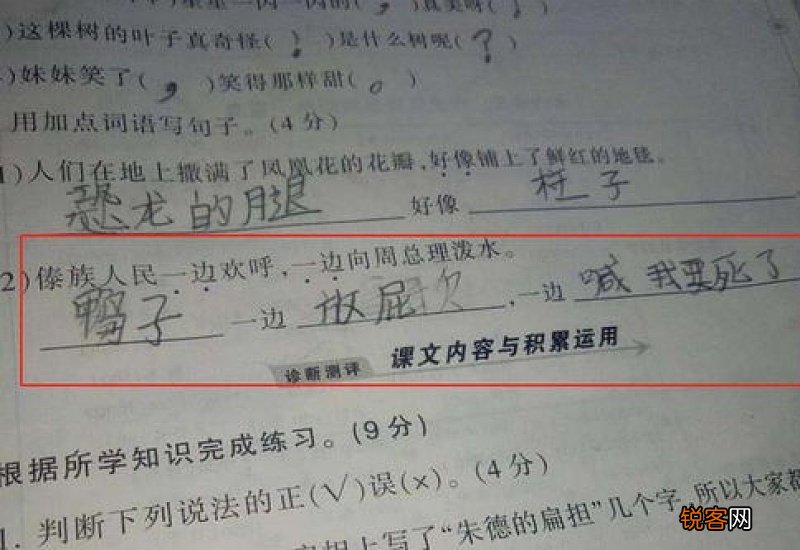 (，)真美呀(！)
)这棵树的叶子真奇怪(！)是什么树呢(？)
)妹妹笑了(，)笑得那样甜(。)
用加点词语写句子。(4分)
1)人们在地上撒满了凤凰花的花瓣，好像铺上了鲜红的地毯。
恐龙的腿 好像 柱子
2)傣族人民一边欢呼，一边向周总理泼水。
鸭子 一边 放屁 一边 喊我要死了
诊断测评 课文内容与积累运用
根据所学知识完成练习。(9分)
1. 判断下列说法的正(√)误(×)。(4分)
扁担上写了“朱德的扁担”几个字，所以大家都
锐客网